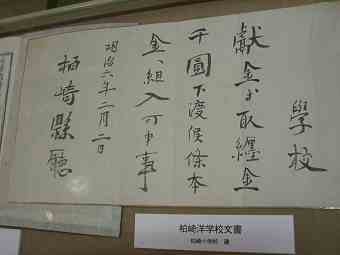 學校
献金ヲ取纒金
千圓下渡候條本
金へ組入可申事
明治六年二月二日
柏崎縣廳
柏崎洋学校文書
柏崎小学校 蔵